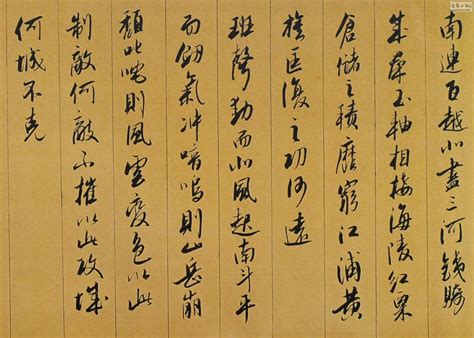 南連百越北盡三河鐵騎
成羣玉軸相接海陵紅粟
倉儲之積靡窮江浦黃
旗匡復之功何遠
班聲動而北風起南斗平
而劍氣沖喑嗚則山岳崩
頹叱咤則風雲變色以此
制敵何敵不摧以此攻城
何城不克